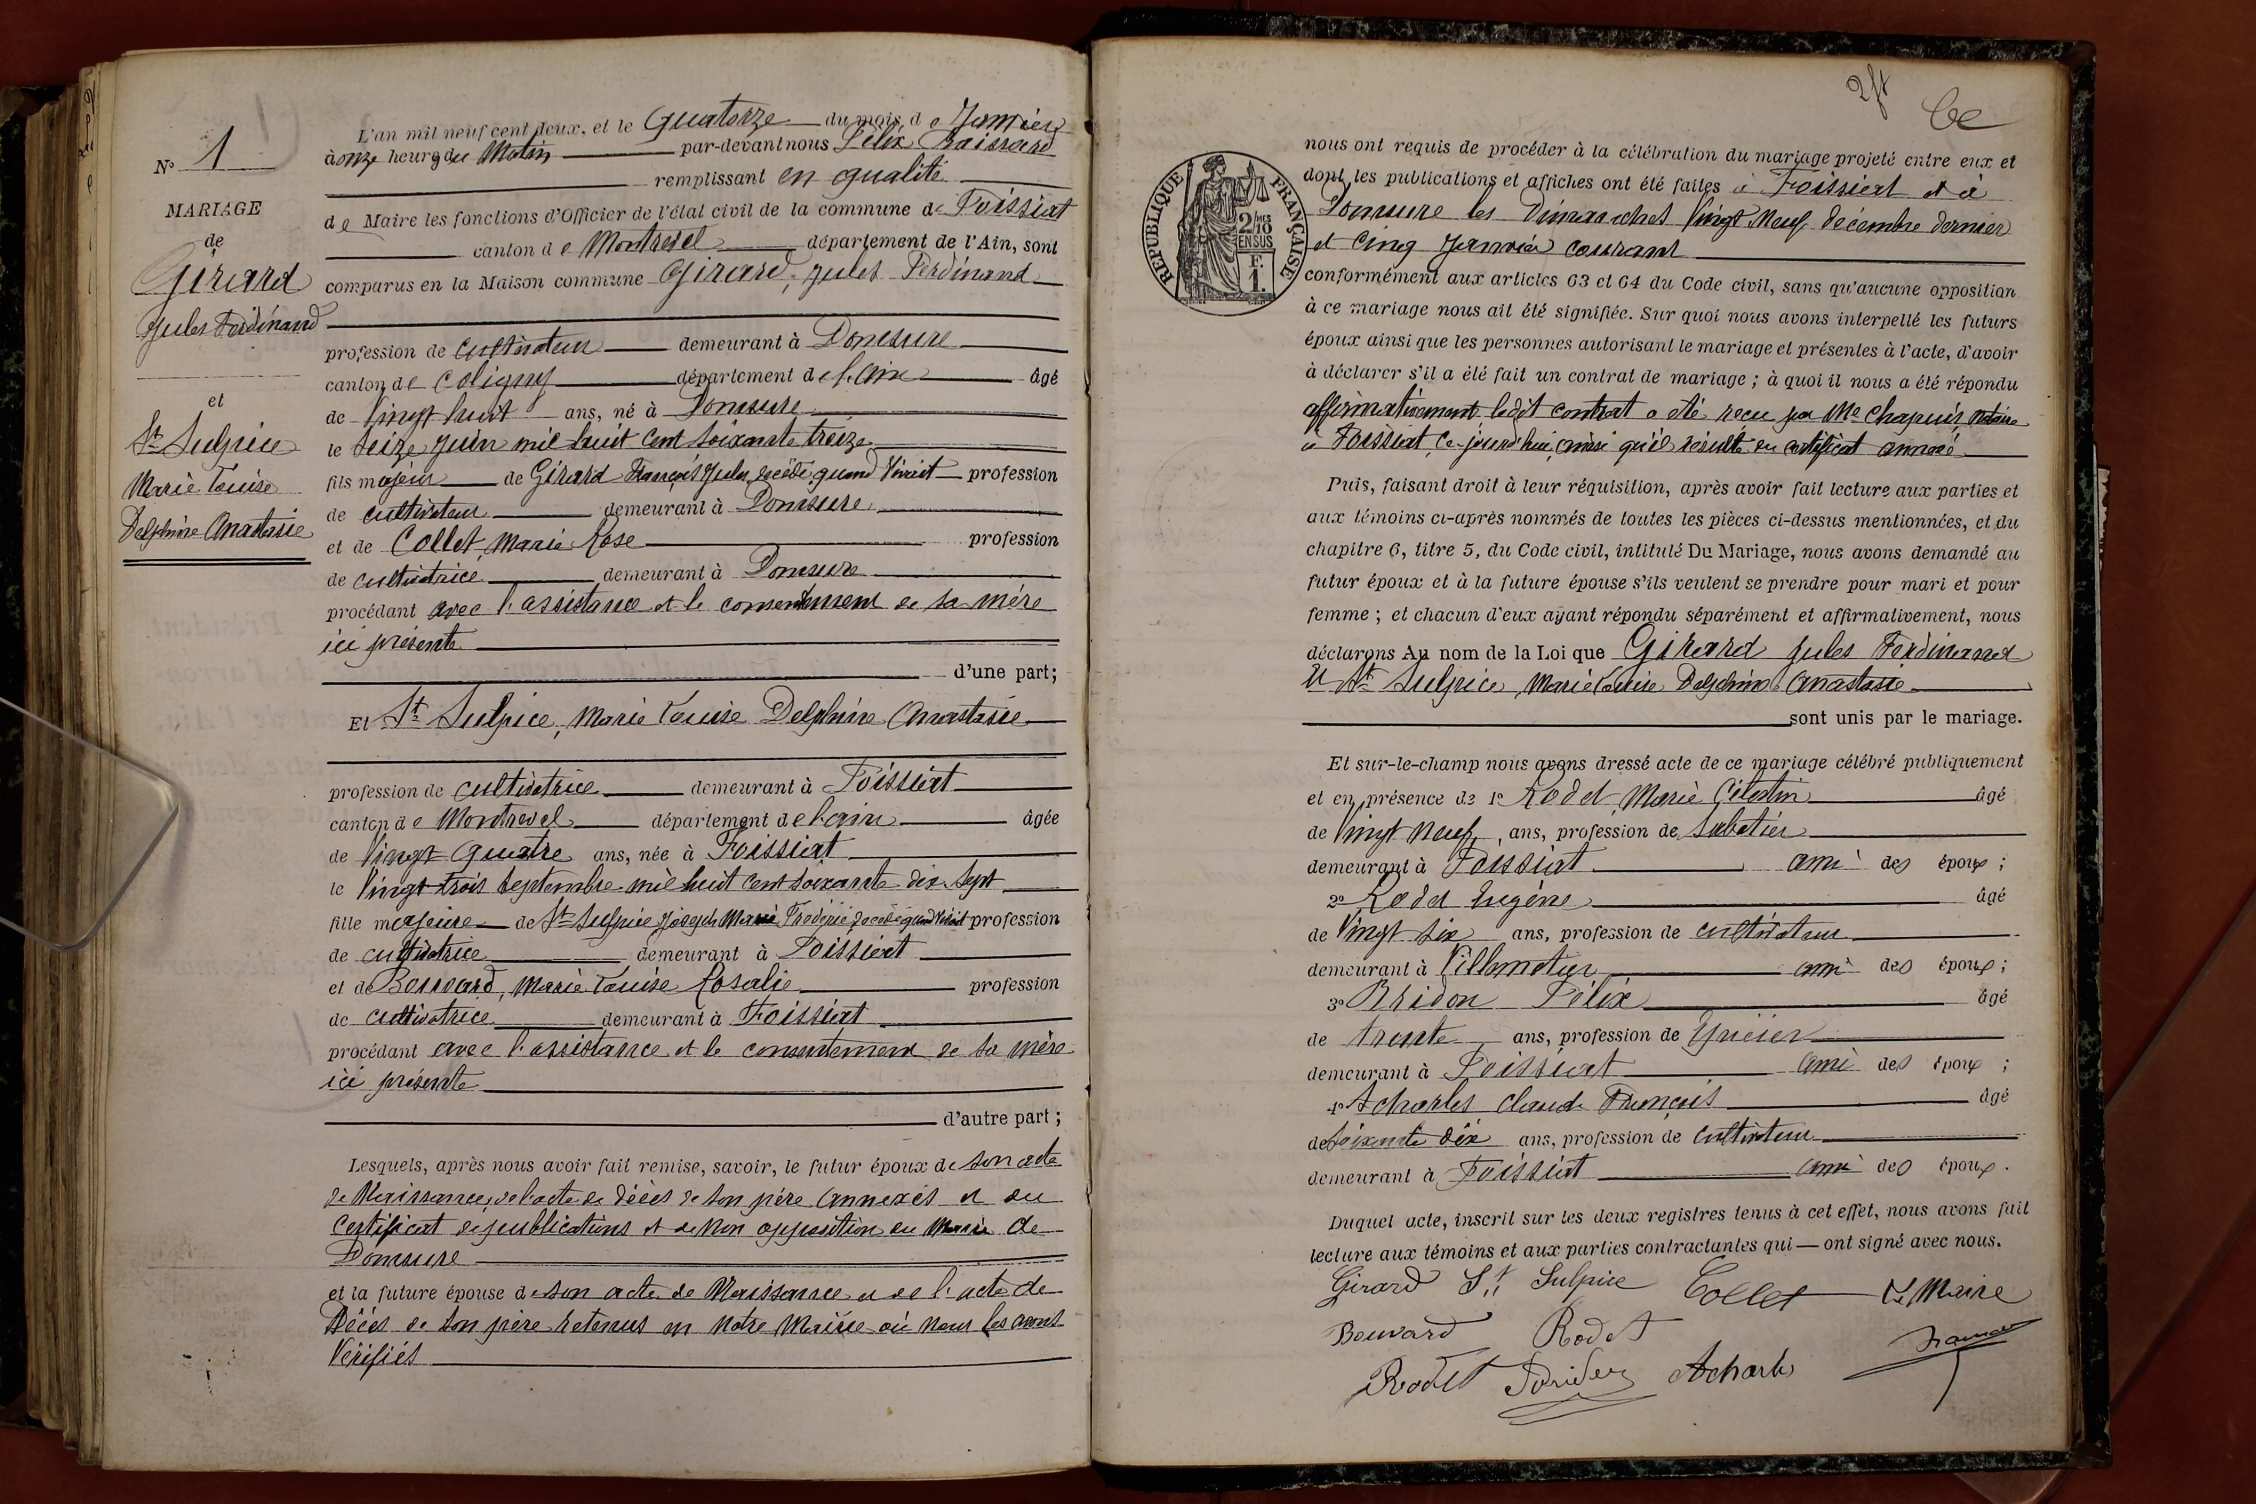 N° 1
MARIAGE
de
Girard
Jules Ferdinand
et
St Sulpice
Marie Louise
Delphine Anastasie
L'an mil neuf cent deux, et le Quatorze du mois de Janvier
à onze heures du Matin par-devant nous Félix
remplissant en qualité
de Maire les fonctions d'Officier de l'état civil de la commune de Foissiat
canton de Montrevel département de l'Ain, sont
comparus en la Maison commune Girard, Jules Ferdinand
profession de cultivateur demeurant à Domsure
canton de Coligny département de l'Ain âgé
de Vingt huit ans, né à Domsure
le Seize Juin mil huit Cent Soixante treize
fils majeur de Girard François Jules, décédé quand vivait profession
de cultivateur demeurant à Domsure
et de Collet, Marie Rose profession
de cultivatrice demeurant à Domsure
procédant avec l'assistance et le consentement de sa mère
ici présente
d'une part;
Et St Sulpice, Marie Louise Delphine Anastasie
profession de cultivatrice demeurant à Foissiat
canton de Montrevel département de l'ain âgée
de Vingt Quatre ans, née à Foissiat
le Vingt Trois Septembre mil huit cent soixante dix Sept
fille majeure de St Sulpice Joseph Marie Frédéric, décédé quand vivait profession
de cultivatrice demeurant à Foissiat
et de Bouvard, Marie Louise Rosalie profession
de cultivatrice demeurant à Foissiat
procédant avec l'assistance et le consentement de sa mère
ici présente
d'autre part;
Lesquels, après nous avoir fait remise, savoir, le futur époux de son acte
de Naissance, de l'acte de décès de son père annexés et du
Certificat de publications et de non opposition du Maire de
Domsure
et la future épouse de son acte de Naissance et de l'acte de
Décès de son père retenus en notre Mairie où nous les avons
Vérifiés
2ft
RÉPUBLIQUE FRANÇAISE
2/10
EN SUS
F.
1.
nous ont requis de procéder à la célébration du mariage projeté entre eux et
dont les publications et affiches ont été faites à Foissiat et à
Domsure les Dimanches Vingt Neuf décembre dernier
et cinq Janvier courant
conformément aux articles 63 et 64 du Code civil, sans qu'aucune opposition
à ce mariage nous ait été signifiée. Sur quoi nous avons interpellé les futurs
époux ainsi que les personnes autorisant le mariage et présentes à l'acte, d'avoir
à déclarer s'il a été fait un contrat de mariage; à quoi il nous a été répondu
affirmativement ledit contrat a été reçu par Me Chapuis Notaire
à Foissiat, ce jourd'hui, ainsi qu'il résulte du certificat annexé
Puis, faisant droit à leur réquisition, après avoir fait lecture aux parties et
aux témoins ci-après nommés de toutes les pièces ci-dessus mentionnées, et du
chapitre 6, titre 5, du Code civil, intitulé Du Mariage, nous avons demandé au
futur époux et à la future épouse s'ils veulent se prendre pour mari et pour
femme; et chacun d'eux ayant répondu séparément et affirmativement, nous
déclarons Au nom de la Loi que Girard Jules Ferdinand
et St Sulpice Marie Louise Delphine Anastasie
sont unis par le mariage.
Et sur-le-champ nous avons dressé acte de ce mariage célébré publiquement
et en présence de 1° Rodet Marie Célestin âgé
de Vingt Neuf ans, profession de Sabotier
demeurant à Foissiat ami des époux;
2° Rodet Eugène âgé
de Vingt six ans, profession de cultivateur
demeurant à Villemotier ami des époux;
3° Bridon Félix âgé
de trente ans, profession de
demeurant à Foissiat ami des époux;
4° Acharles Claude François âgé
de Soixante dix ans, profession de cultivateur
demeurant à Foissiat ami des époux.
Duquel acte, inscrit sur les deux registres tenus à cet effet, nous avons fait
lecture aux témoins et aux parties contractantes qui ont signé avec nous.
Girard St Sulpice Collet Le Maire
Bouvard Rodet
Rodet Acharles